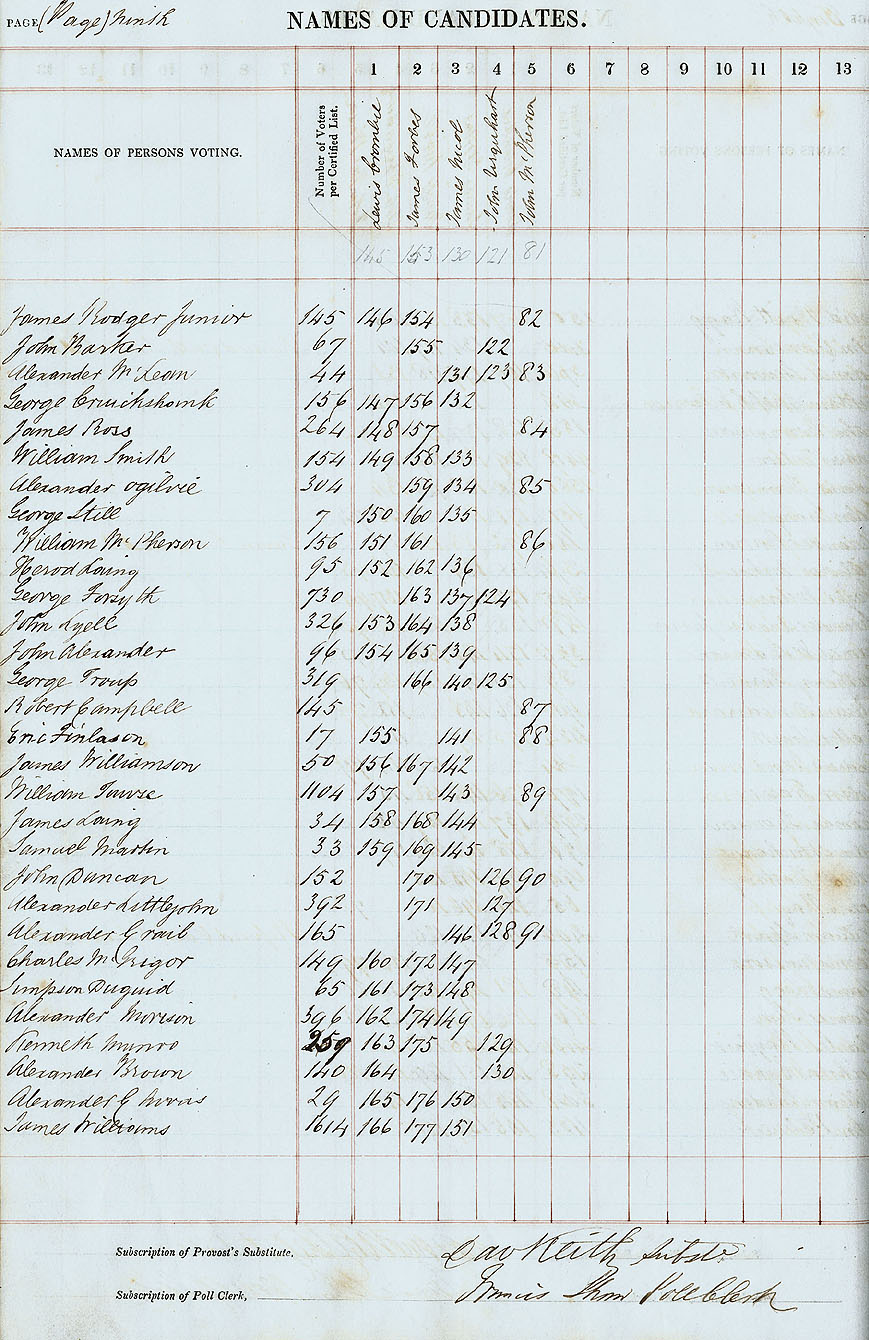 PAGE (Page) ninth NAMES OF CANDIDATES.
1 2 3 4 5 6 7 8 9 10 11 12 13
NAMES OF PERSONS VOTING. Number of Voters per Certified List. Lewis Crombie James Forbes James Nicol John Urquhart John McPherson
145 153 130 121 81
James Rodger Junior 145 146 154 82
John Barker 67 155 122
Alexander McLean 44 131 123 83
George Cruickshank 156 147 156 132
James Ross 264 148 157 84
William Smith 154 149 158 133
Alexander Ogilvie 304 159 134 85
George Still 7 150 160 135
William McPherson 156 151 161 86
Herod Laing 95 152 162 136
George Forsyth 730 163 137 124
John Lyell 326 153 164 138
John Alexander 96 154 165 139
George Troup 319 166 140 125
Robert Campbell 145 87
Eric Finlason 17 155 141 88
James Williamson 50 156 167 142
William Tawse 1104 157 143 89
James Laing 34 158 168 144
Samuel Martin 33 159 169 145
John Duncan 152 170 126 90
Alexander Littlejohn 392 171 127
Alexander Craib 165 146 128 91
Charles McGrigor 149 160 172 147
Simpson Duguid 65 161 173 148
Alexander Morison 596 162 174 149
Kenneth Munro 259 163 175 129
Alexander Brown 140 164 130
Alexander 29 165 176 150
James Williams 1614 166 177 151
Subscription of Provost's Substitute. Dav Keith Substt.
Subscription of Poll Clerk, Francis Thom Poll Clerk